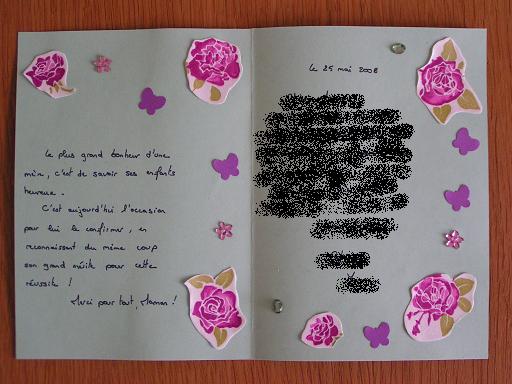 Le plus grand bonheur d'une
mère, c'est de savoir ses enfants
heureux.
C'est aujourd'hui l'occasion
pour lui le confirmer, en
reconnaissant du même coup
son grand mérite pour cette
réussite !
Merci pour tout, Maman !
le 25 mai 2008